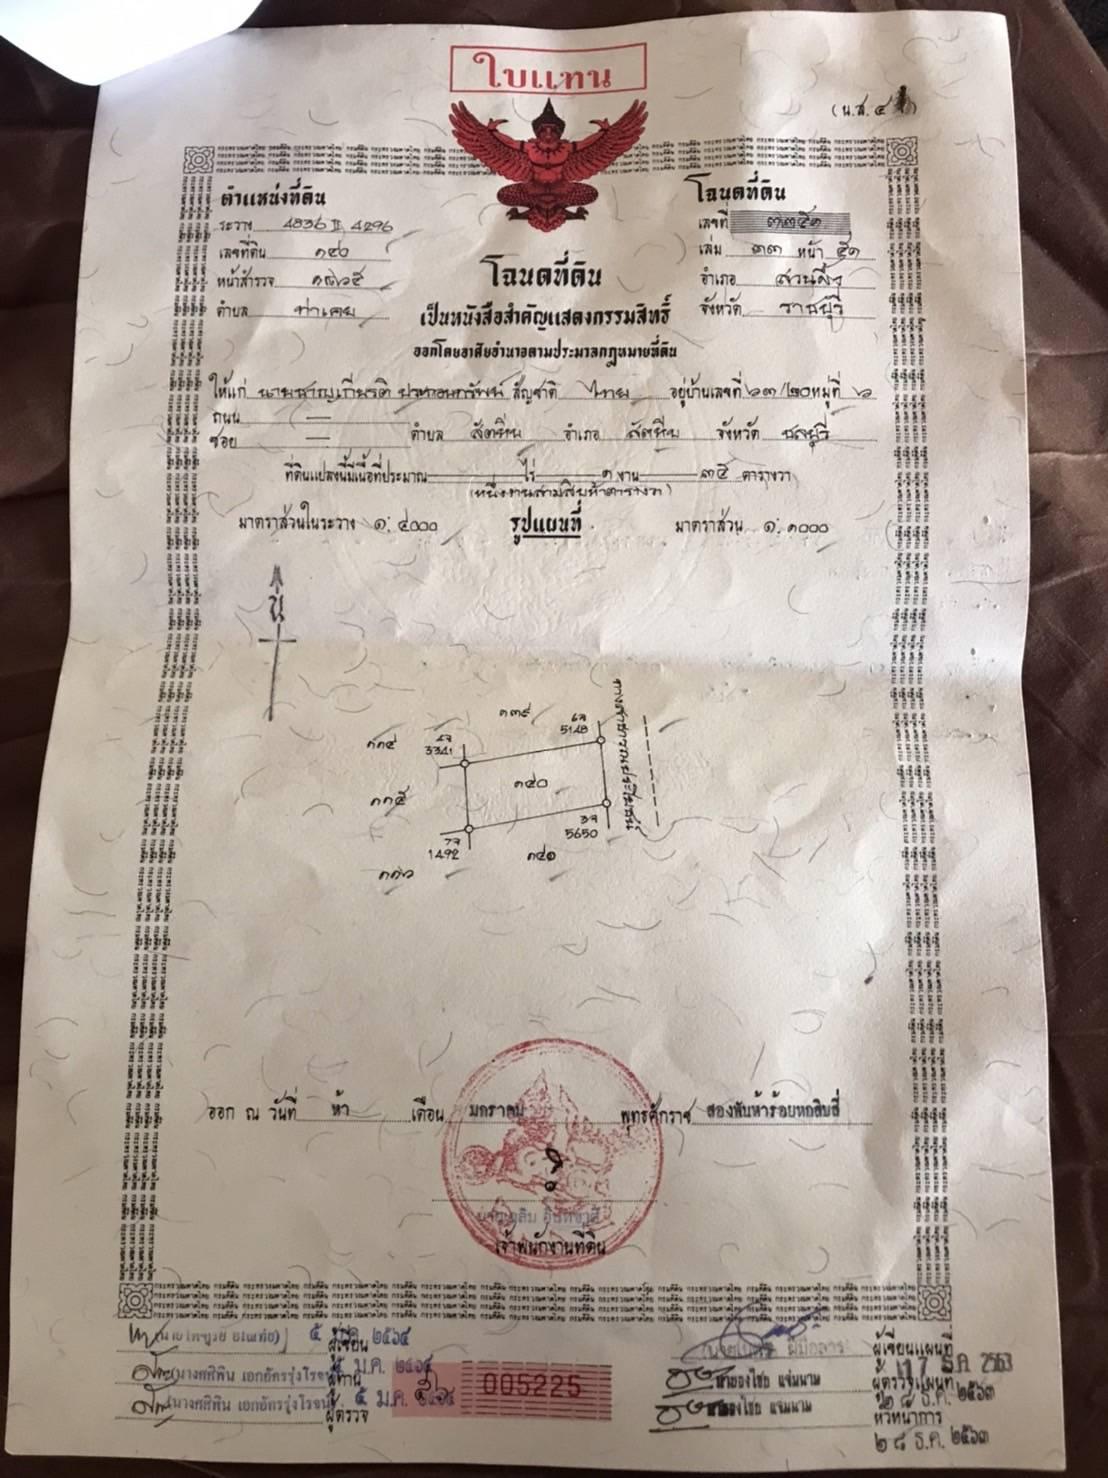 ใบแทน
(น.ส.๔
ตำแหน่งที่ดิน
ระวาง 4836 II 4296
เลขที่ดิน ๑๔๐
หน้าสำรวจ
ตำบล ท่าเคย
โฉนดที่ดิน
เลขที่ ๓๒๕๑
เล่ม ๓๓ หน้า ๕๑
อำเภอ สวนผึ้ง
จังหวัด ราชบุรี
โฉนดที่ดิน
เป็นหนังสือสำคัญแสดงกรรมสิทธิ์
ออกโดยอาศัยอำนาจตามประมวลกฎหมายที่ดิน
ให้แก่ นายชาญเกียรติ สัญชาติ ไทย อยู่บ้านเลขที่ ๖๓/๒๐ หมู่ที่ ๖
ถนน —
ซอย — ตำบล สัตหีบ อำเภอ สัตหีบ จังหวัด ชลบุรี
ที่ดินแปลงนี้มีเนื้อที่ประมาณ — ไร่ ๑ งาน ๓๕ ตารางวา
(หนึ่งงานสามสิบห้าตารางวา)
มาตราส่วนในระวาง ๑:๔๐๐๐ รูปแผนที่ มาตราส่วน ๑:๑๐๐๐
น
๑๓๙
๑๑๔
3341
5148
ทางสาธารณประโยชน์
๑๔๐
๑๑๕
5650
1492
๑๔๑
๑๑๖
ออก ณ วันที่ ห้า เดือน มกราคม พุทธศักราช สองพันห้าร้อยหกสิบสี่
เจ้าพนักงานที่ดิน
๕ ม.ค. ๒๕๖๔
ผู้เขียน
(นางศศิพิน เอกอัครรุ่งโรจน์) ๕ ม.ค. ๒๕๖๔
ผู้ทาน
(นางศศิพิน เอกอัครรุ่งโรจน์) ๕ ม.ค. ๒๕๖๔
ผู้ตรวจ
005225
ผู้เขียนแผนที่
17 ธ.ค. 2563
นายธงไชย แจ่มนาม ผู้ตรวจแผนที่
๒๘ ธ.ค. ๒๕๖๓
นายธงไชย แจ่มนาม หัวหน้าการ
๒๘ ธ.ค. ๒๕๖๓